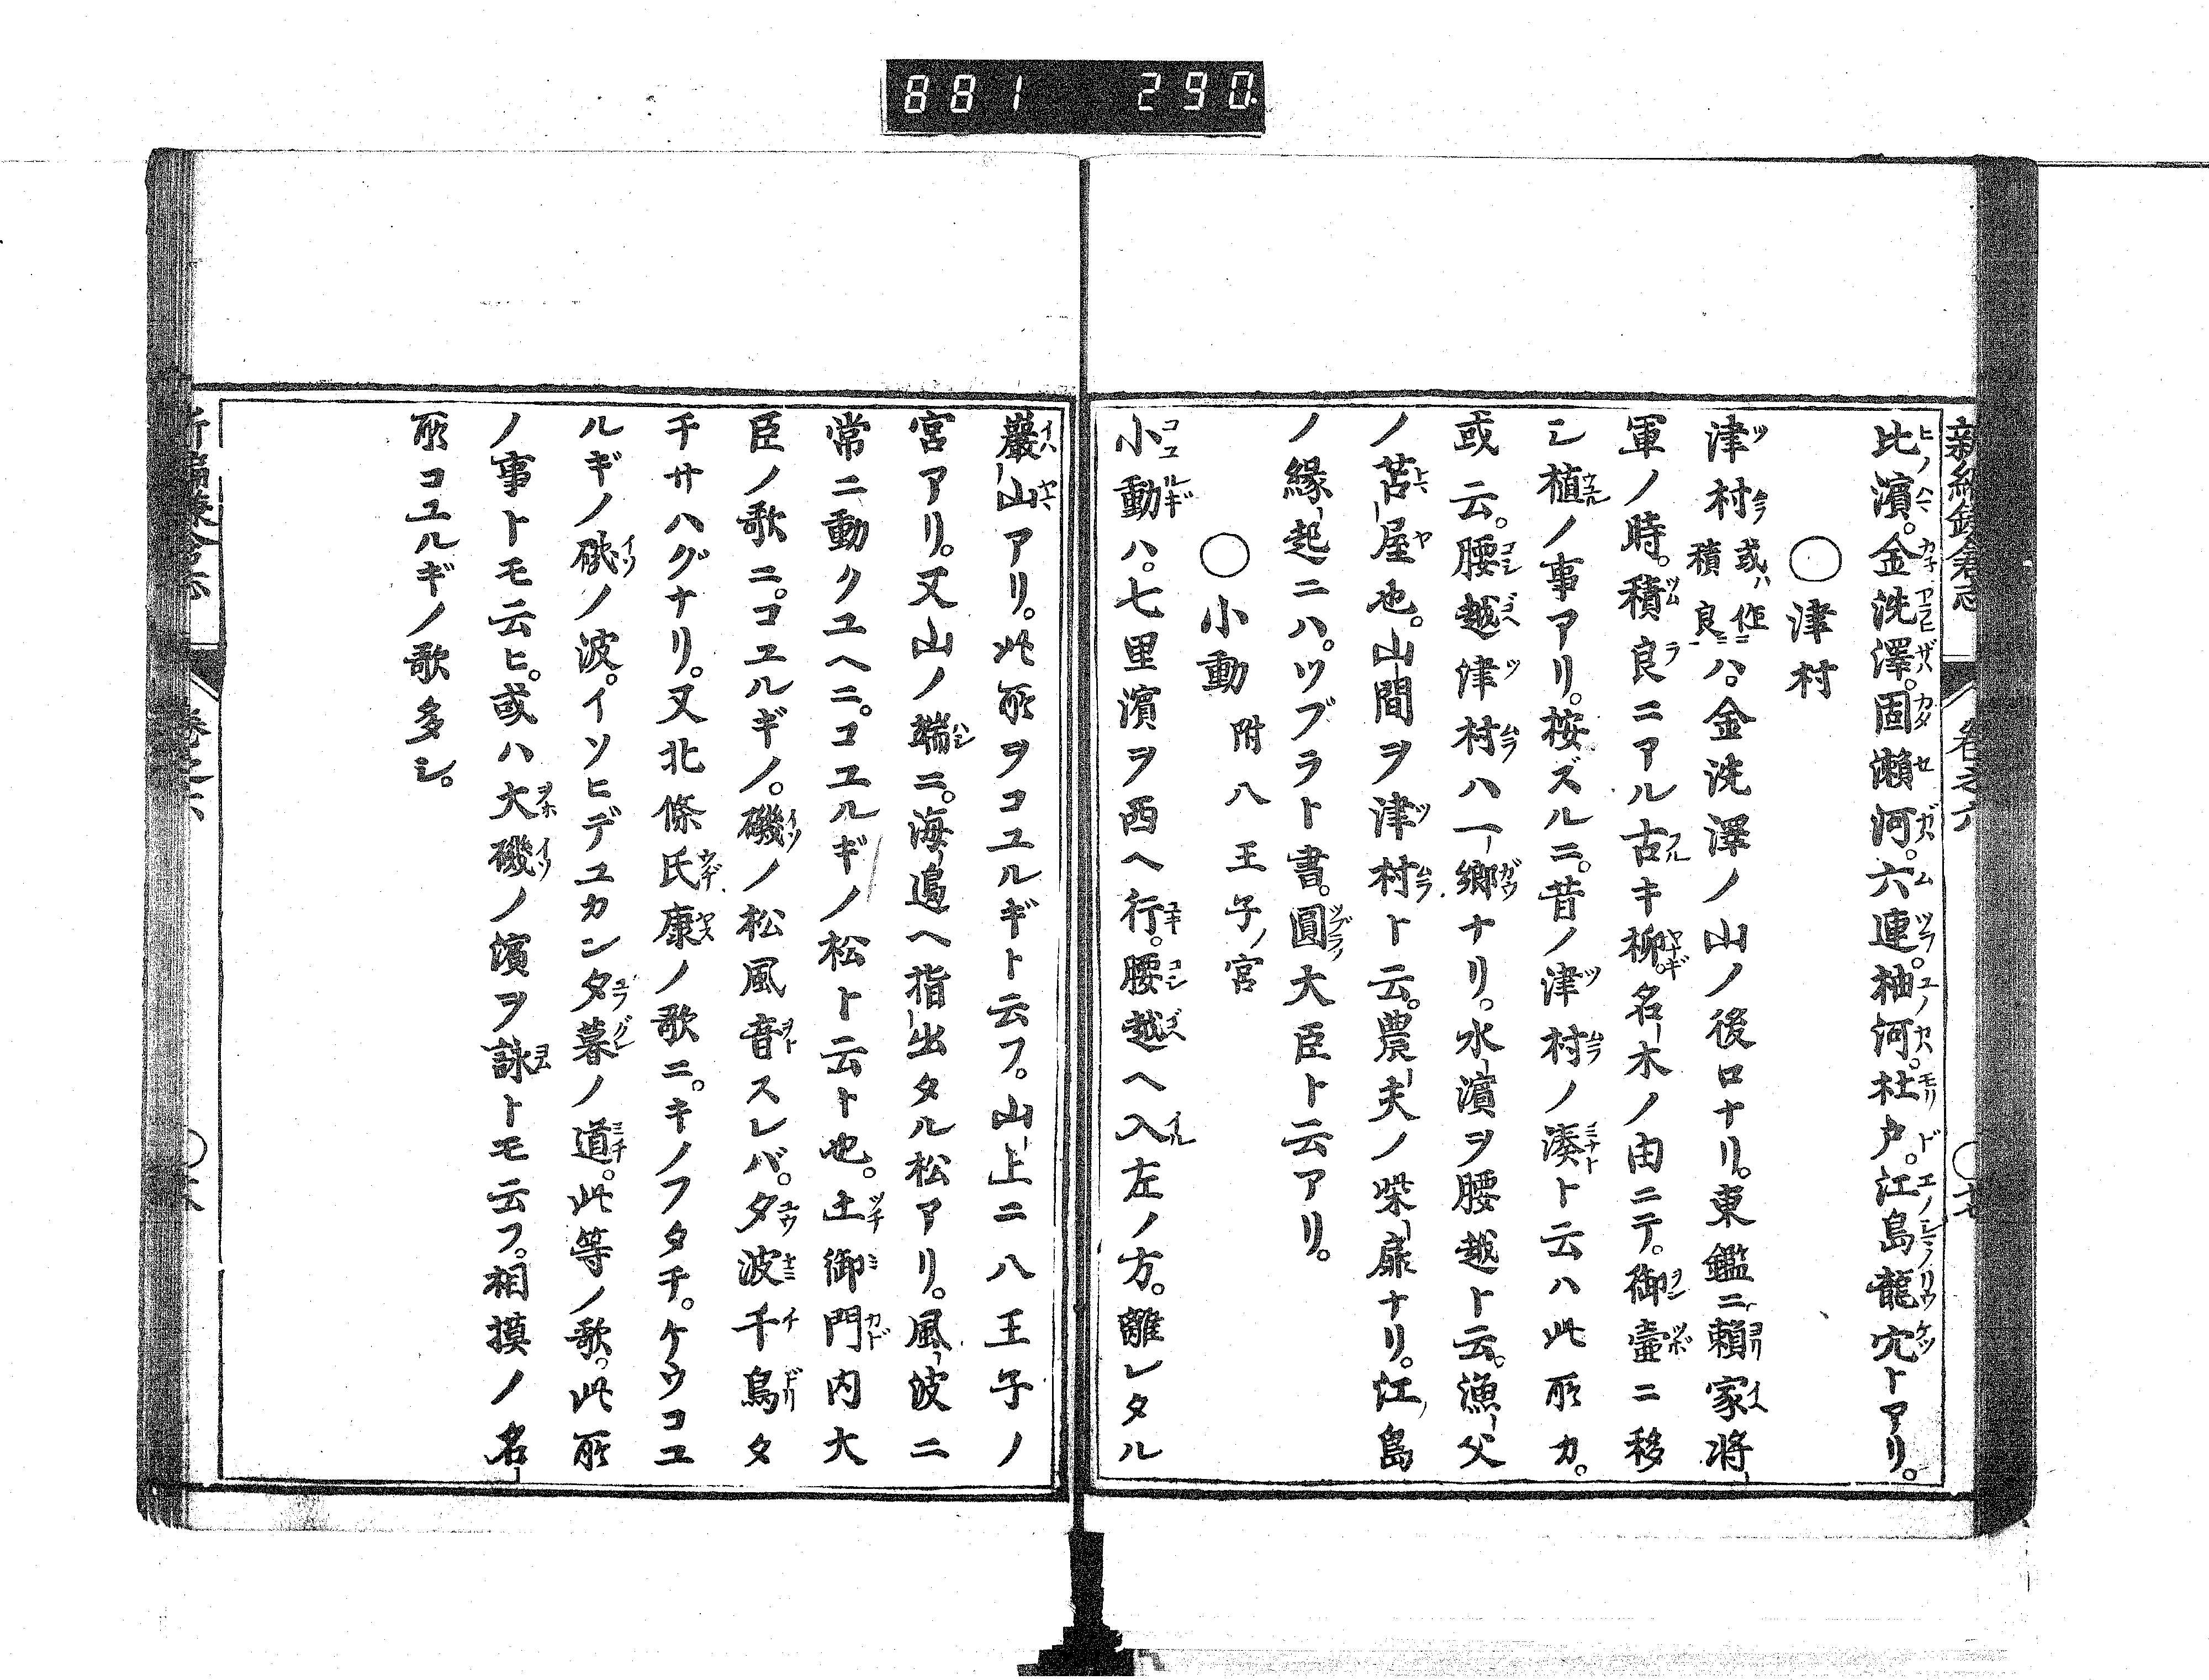 881 290
比濱。金洗澤。固瀬河。六連。柚河。杜戸。江島龍穴トアリ。
○津村
津村或ハ作積良ハ。金洗澤ノ山ノ後ロナリ。東鑑ニ頼家將
軍ノ時。積良ニアル古キ柳。名木ノ由ニテ。御壷ニ移
シ植ノ事アリ。按ズルニ。昔ノ津村ノ湊ト云ハ此所カ。
或云。腰越津村ハ一郷ナリ。水濱ヲ腰越ト云。漁父
ノ苫屋也。山間ヲ津村ト云。農夫ノ柴扉ナリ。江島
ノ縁起ニハ。ツブラト書。圓大臣ト云アリ。
○小動 附八王子ノ宮
小動ハ。七里濱ヲ西ヘ行。腰越ヘ入左ノ方。離レタル
巖山アリ。此所ヲコユルギト云フ。山上ニ八王子ノ
宮アリ。又山ノ端ニ。海邉ヘ指出タル松アリ。風波ニ
常ニ動クユヘニ。コユルギノ松ト云ト也。土御門内大
臣ノ歌ニ。コユルギノ。磯ノ松風音スレバ。夕波千鳥タ
チサハグナリ。又北條氏康ノ歌ニ。キノフタチ。ケウコユ
ルギノ磯ノ波。イソヒデユカン夕暮ノ道。此等ノ歌。此所
ノ事トモ云ヒ。或ハ大磯ノ濱ヲ詠トモ云フ。相摸ノ名
所コユルギノ歌多シ。